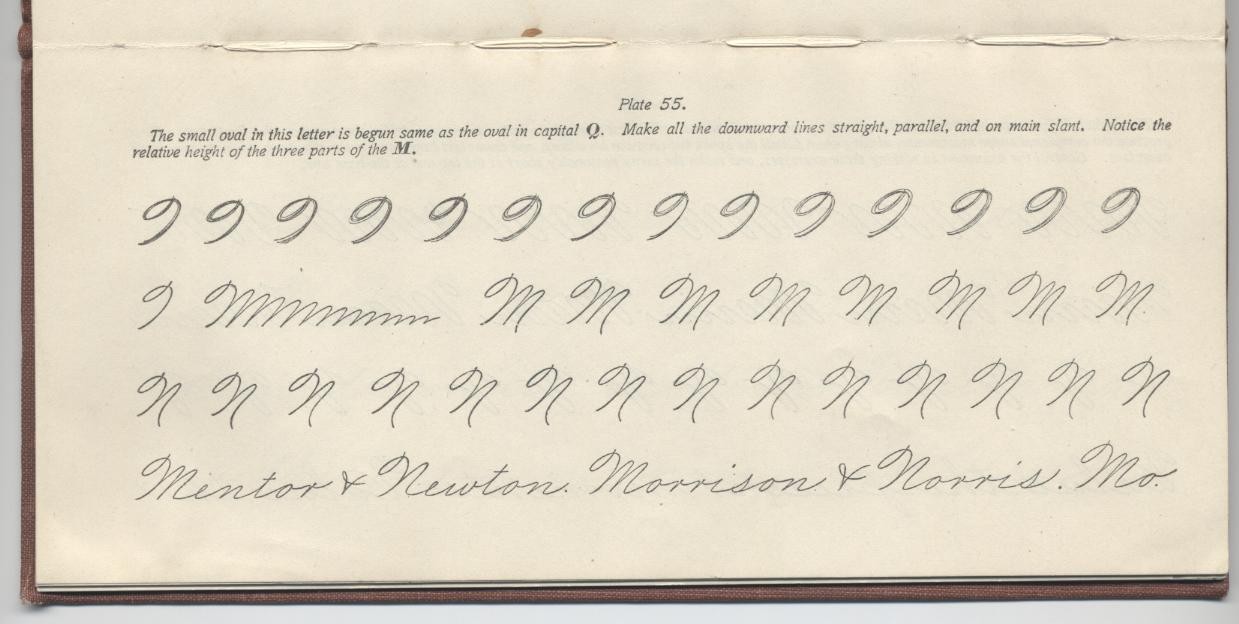 Plate 55.
The small oval in this letter is begun same as the oval in capital Q. Make all the downward lines straight, parallel, and on main slant. Notice the
relative height of the three parts of the M.
M M M M M M M M
N N N N N N N N N N N N N N
Mentor & Newton. Morrison & Norris. Mo.